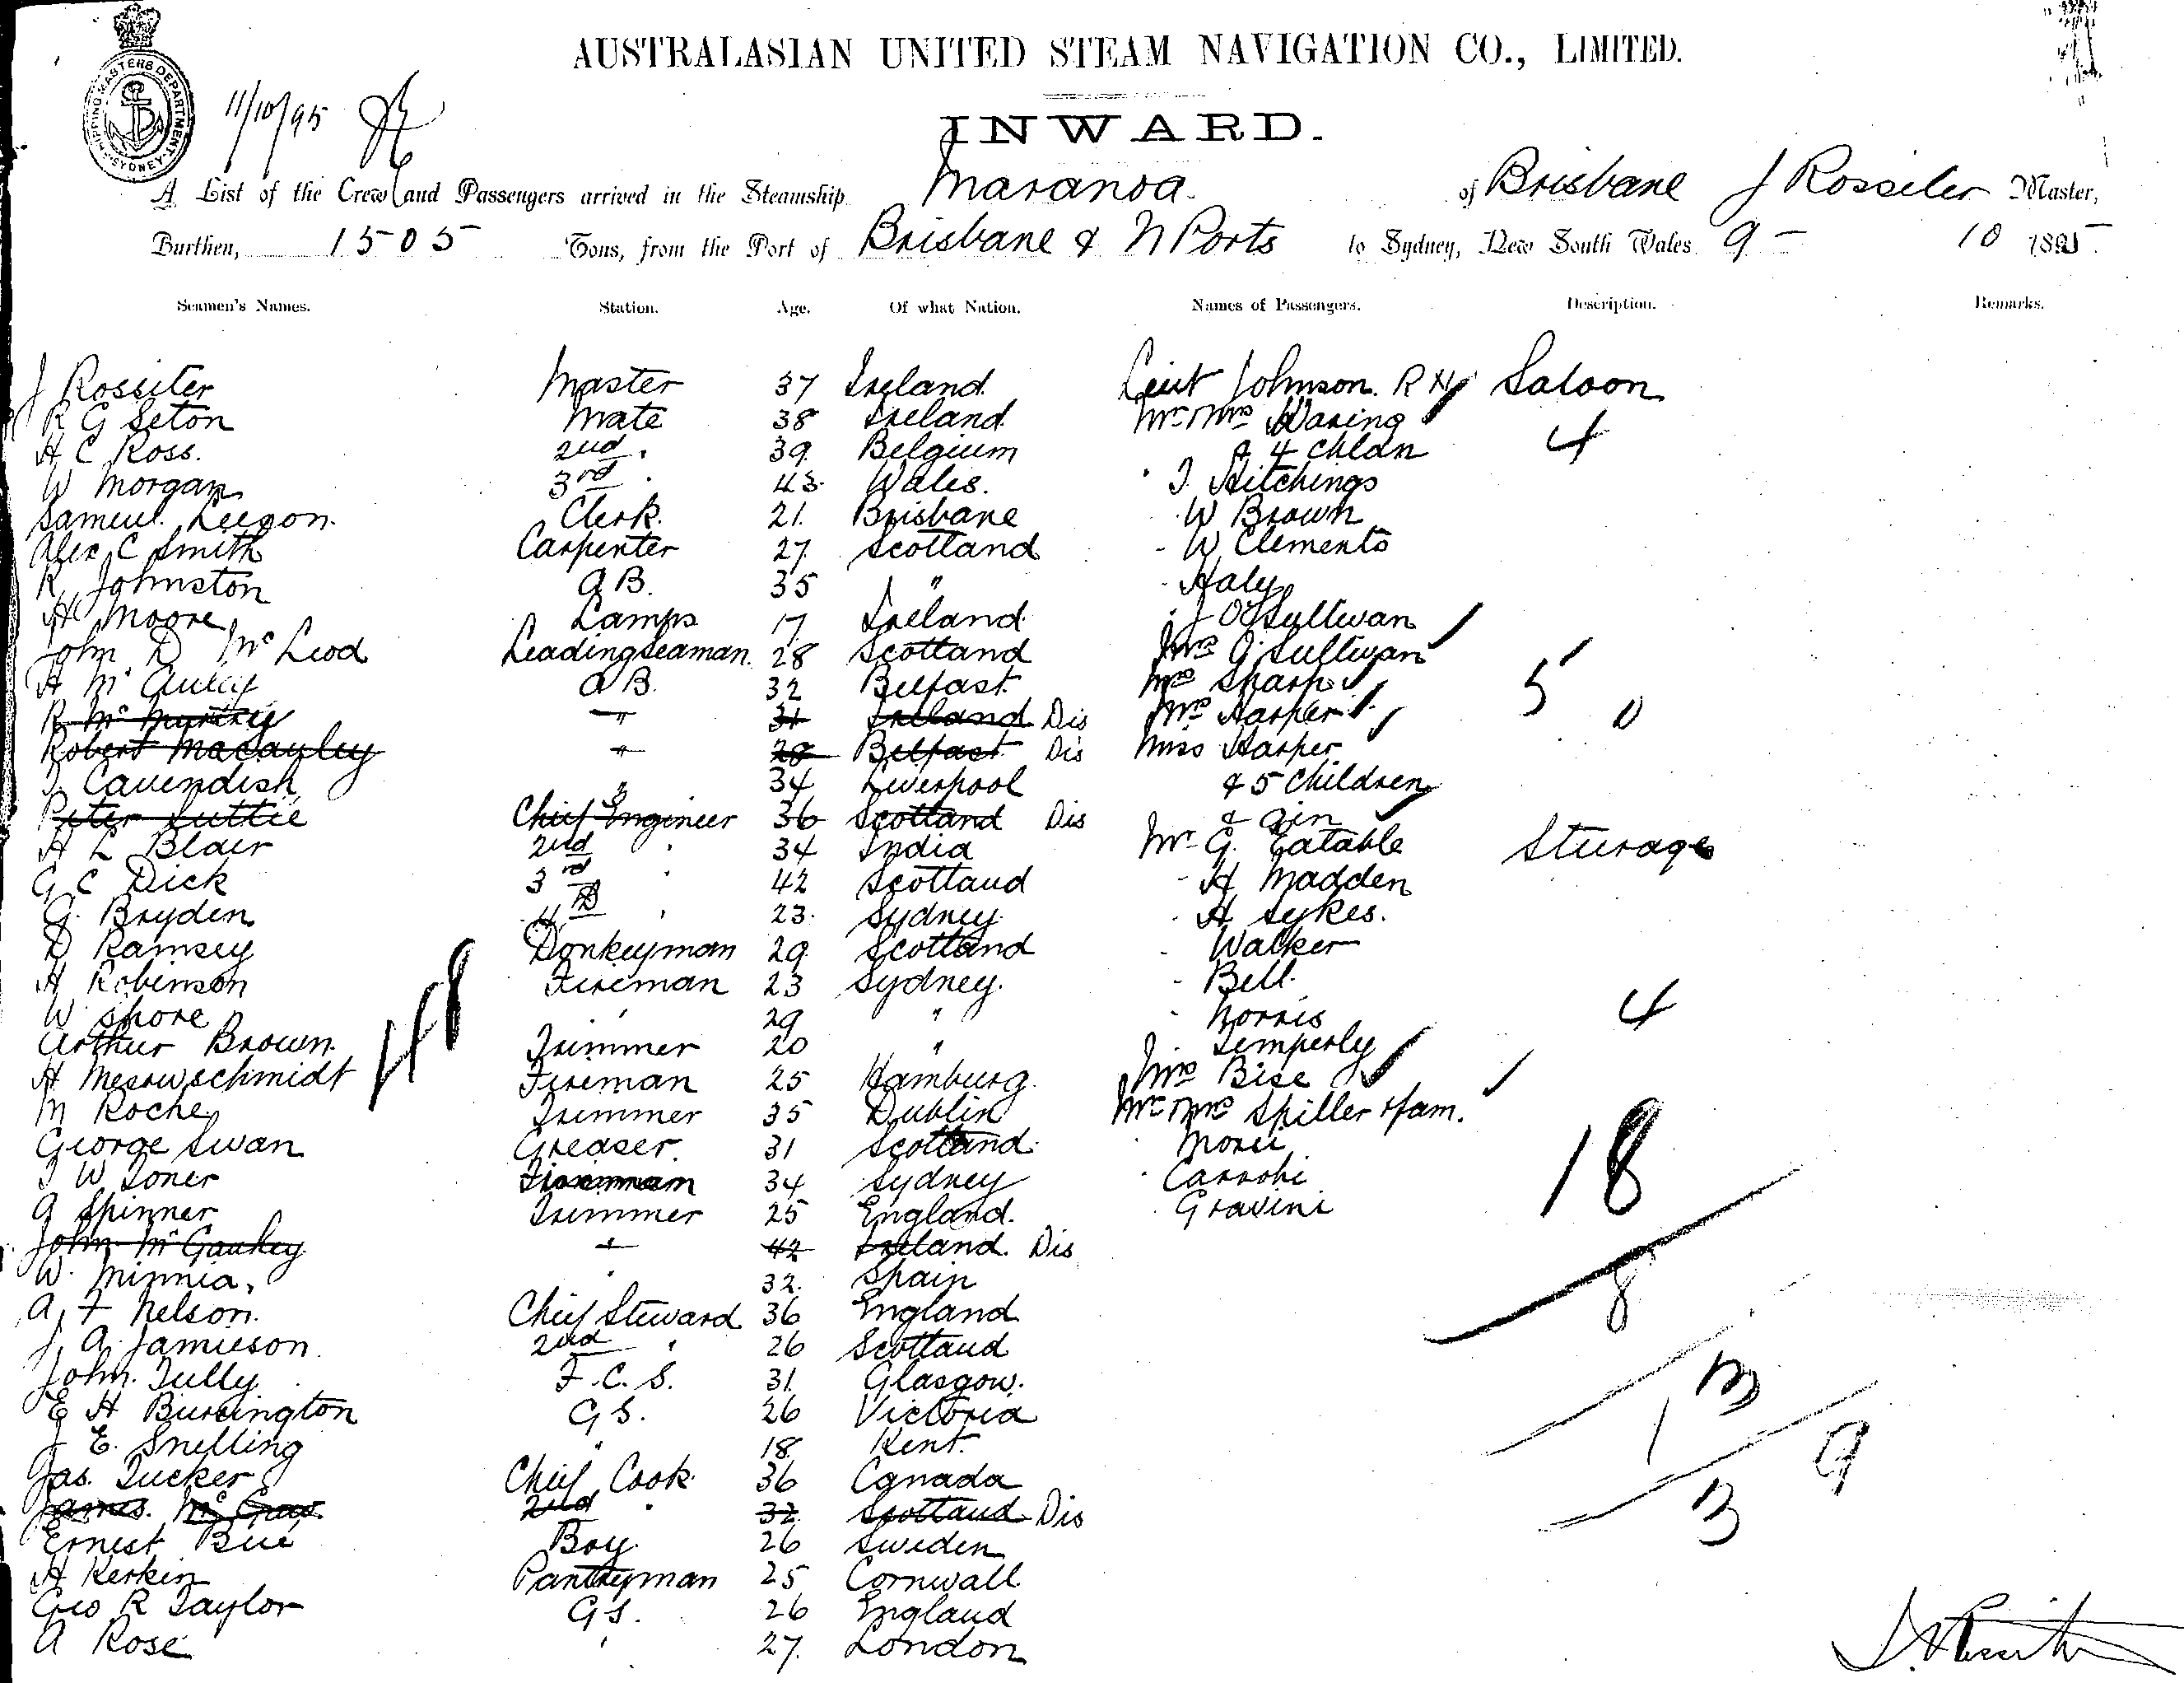 SHIPPING MASTERS DEPARTMENT SYDNEY
11/10/95
AUSTRALASIAN UNITED STEAM NAVIGATION CO., LIMITED.
INWARD.
A List of the Crew and Passengers arrived in the Steamship Maranoa. of Brisbane J Rossiter Master,
Burthen, 1505 Tons, from the Port of Brisbane & N Ports to Sydney, New South Wales 9 - 10 1895
Seamen's Names. Station. Age. Of what Nation. Names of Passengers. Description. Remarks.
J Rossiter Master 37 Ireland. Lieut Johnson. RN Saloon
R G Seton Mate 38 Ireland. Mr Mrs Waring
H C Ross. 2nd 39 Belgium & 4 chldn 4
W Morgan 3rd 43 Wales. T. Hitchings
Samuel Clerk. 21. Brisbane W Brown
Alex C Smith Carpenter 27 Scotland W Clements
R Johnston A B. 35 " Haly
H Moore Lamps 17 Ireland J O'Sullivan
John D McLeod Leading Seaman. 28 Scotland Mrs O'Sullivan
H McAuley A B. 32 Belfast Mrs Sharp 5
R McMurtry " 31 Ireland. Dis Mrs Harper 0
Robert Macauley " 28 Belfast Dis Miss Harper
T Cavendish " 34 Liverpool & 5 children
Peter Luttie Chief Engineer 36 Scotland Dis &
H L Blair 2nd 34 India Mr G. Eatable Sturage
G C Dick 3rd 42 Scotland H Madden
G. Bryden 4th 23. Sydney H Sykes.
D Ramsey Donkeyman 29 Scotland Walker
H Robinson Fireman 23 Sydney. Bell.
W Shore " 29 " Norris 4
Arthur Brown. 48 Trimmer 20 " Temperly
H Meswschmidt Fireman 25 Hamburg. Mrs Bise
M Roche Trimmer 35 Dublin Mr Mrs Spiller & fam.
George Swan Greaser. 31 Scotland. 18
T W Toner Fireman 34 Sydney
A Spinner Trimmer 25 England. Gravini
John McGauhey " 42 Ireland. Dis
W. Minnia. " 32. Spain 8
A F Nelson. Chief Steward 36 England
J. A. Jamieson. 2nd 26 Scotland
John. Tully F. C. S. 31. Glasgow.
E H Burrington G S. 26 Victoria
J E. Snelling " 18 Kent. 9
Jas. Tucker Chief Cook 36 Canada
James. McGraw 2nd 32 Scotland Dis
Ernest Bué Boy. 26 Sweden
H Kerkin Pantryman 25 Cornwall.
Geo R Taylor G S. 26 England
A Rose " 27. London